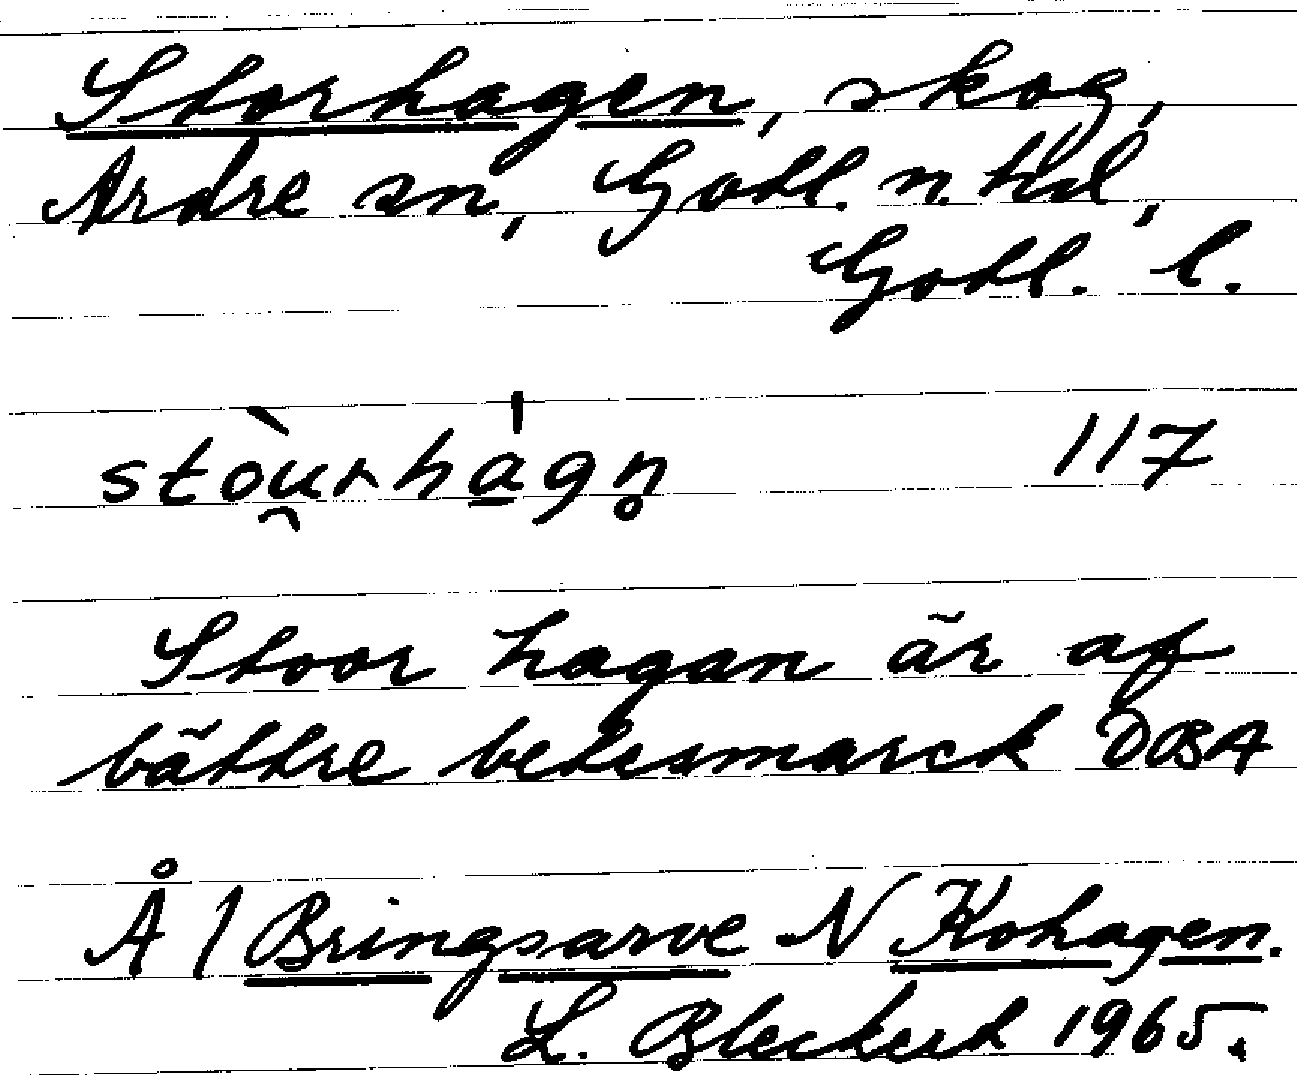 Storhagen, skog,
Ardre sn, Gotl. n. hd,
Gotl. l.
stòu̯rha̲̍gn̥ 117
Stoor hagan är af
bättre betesmarck DBA
Å 1 Bringsarve N Kohagen.
L. Bleckert 1965.